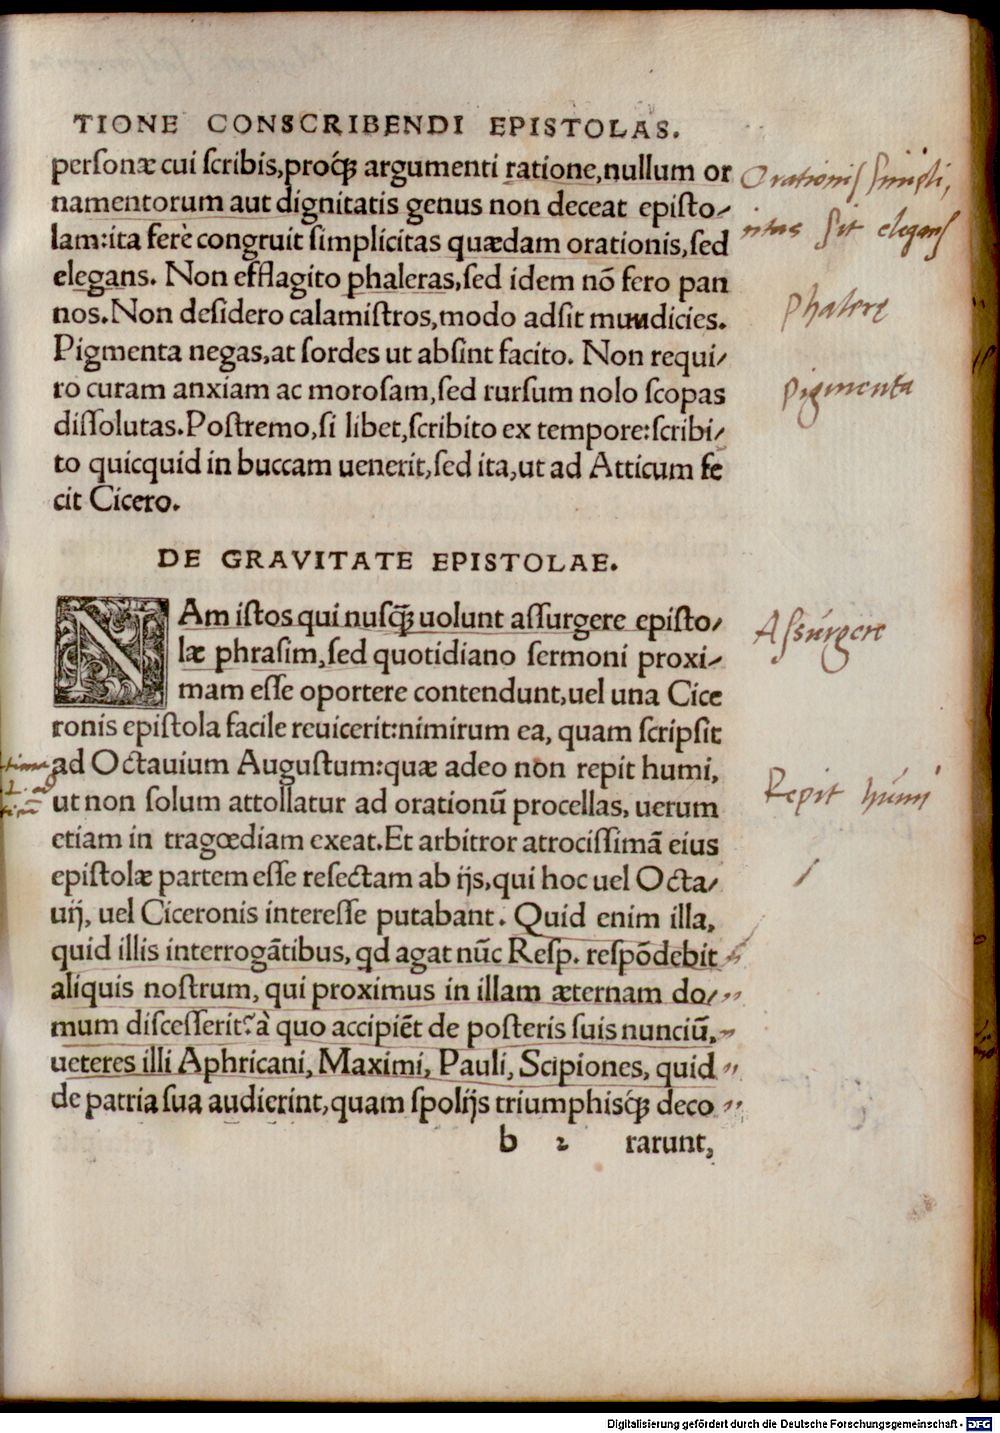 TIONE CONSCRIBENDI EPISTOLAS.
personæ cui ſcribis,proq́ꝫ argumenti ratione,nullum or
namentorum aut dignitatis genus non deceat epiſto/
lam:ita ferè congruit ſimplicitas quædam orationis,ſed
elegans. Non efflagito phaleras,ſed idem nō fero pan
nos.Non deſidero calamiſtros,modo adſit mundicies.
Pigmenta negas,at ſordes ut abſint facito. Non requi/
ro curam anxiam ac moroſam,ſed rurſum nolo ſcopas
diſſolutas.Poſtremo,ſi libet,ſcribito ex tempore:ſcribi/
to quicquid in buccam uenerit,ſed ita,ut ad Atticum fe
cit Cicero.
Orationiſ ſimpli,
citas ſit eleganſ
Phalerę
pigmenta
DE GRAVITATE EPISTOLAE.
NAm iſtos qui nuſq̃ꝫ uolunt aſſurgere epiſto/
læ phraſim,ſed quotidiano ſermoni proxi/
mam eſſe oportere contendunt,uel una Cice
ronis epiſtola facile reuicerit:nimirum ea, quam ſcripſit
ad Octauium Auguſtum:quæ adeo non repit humi,
ut non ſolum attollatur ad orationū procellas, uerum
etiam in tragœdiam exeat.Et arbitror atrociſſimā eius
epiſtolæ partem eſſe reſectam ab ijs,qui hoc uel Octa/
uij, uel Ciceronis intereſſe putabant. Quid enim illa,
quid illis interrogātibus, qd agat nūc Reſp. reſpōdebit
aliquis noſtrum, qui proximus in illam æternam do/
mum diſceſſerit? à quo accipiēt de poſteris ſuis nunciū,
ueteres illi Aphricani, Maximi, Pauli, Scipiones, quid
de patria ſua audierint,quam ſpolijs triumphisq́ꝫ deco
b 2 rarunt,
Aſſurgere
Repit humi
Digitalisierung gefördert durch die Deutsche Forschungsgemeinschaft - DFG